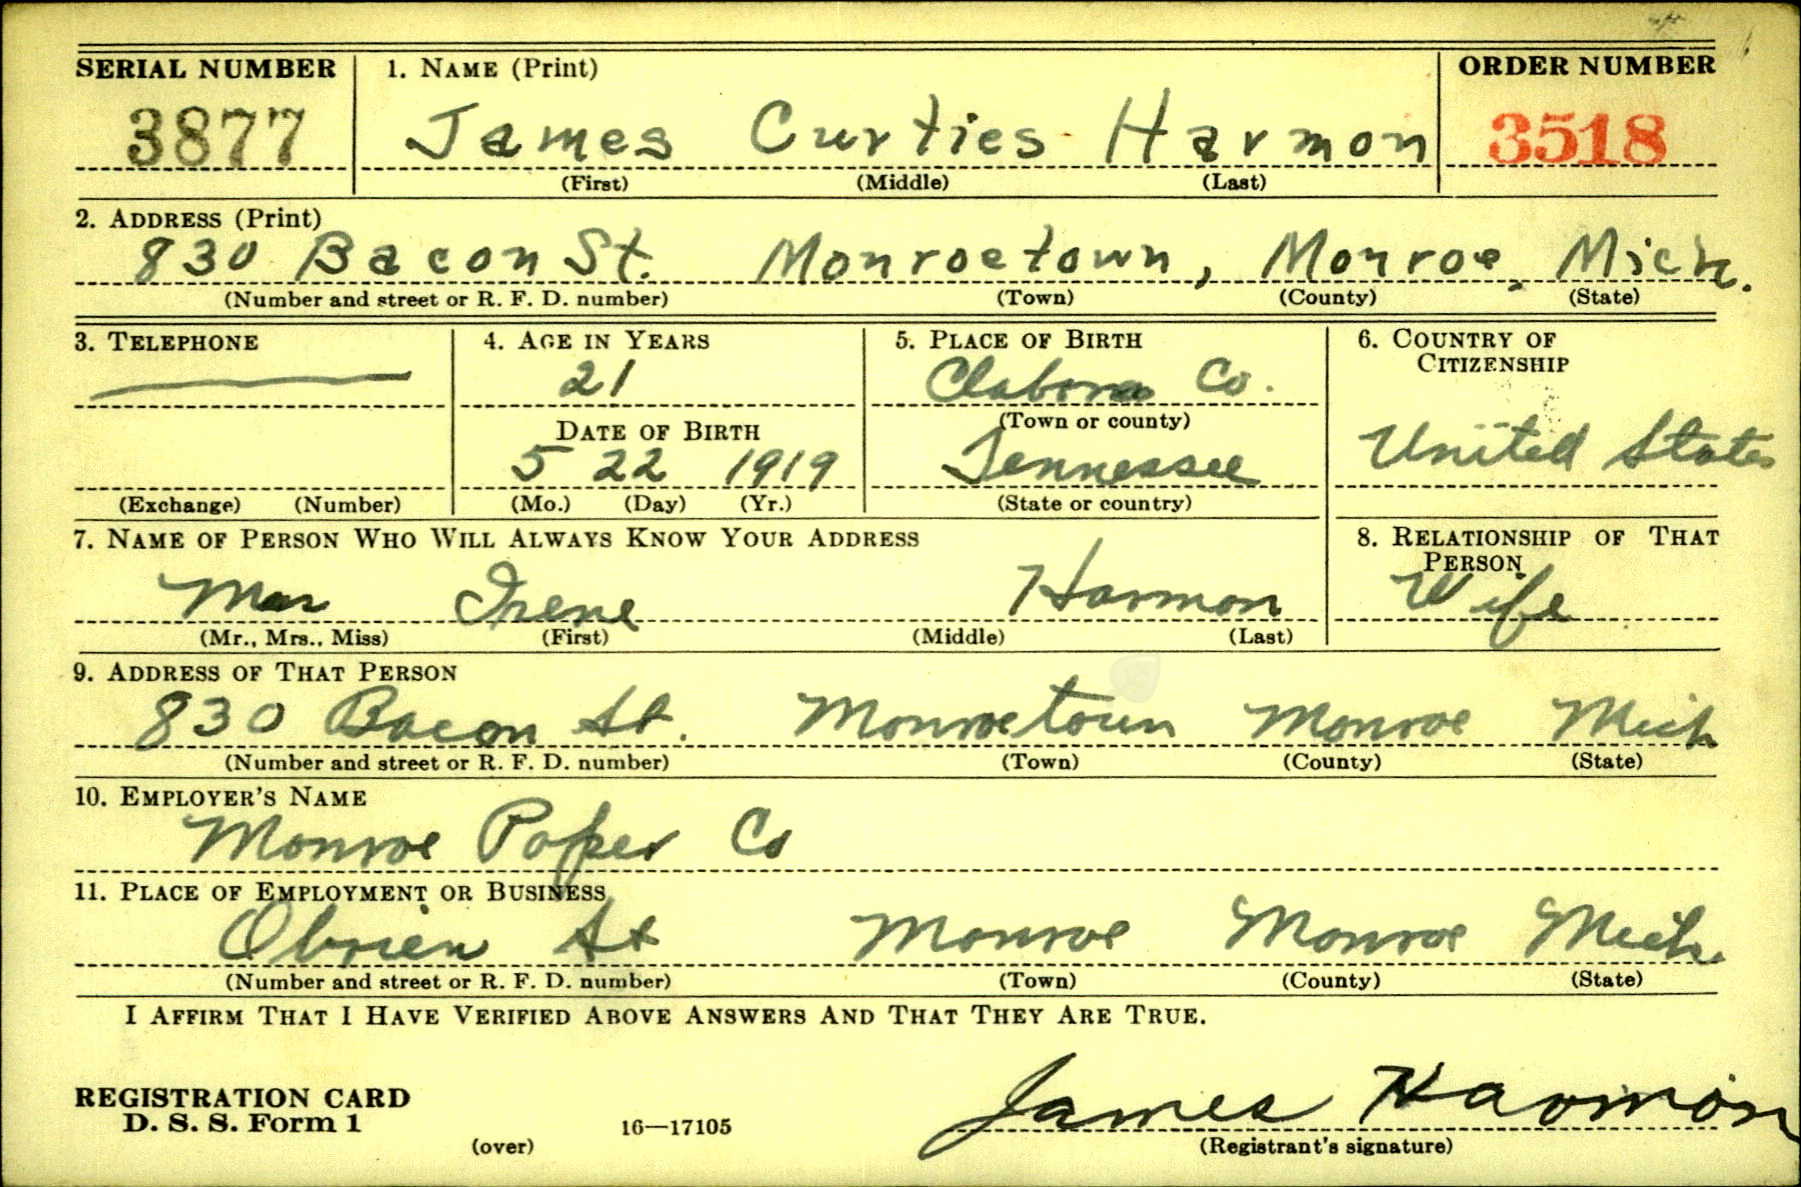 SERIAL NUMBER 1. NAME (Print) ORDER NUMBER
3877 James Curties Harmon 3518
(First) (Middle) (Last)
2. ADDRESS (Print)
830 Bacon St. Monroetown, Monroe, Mich.
(Number and street or R. F. D. number) (Town) (County) (State)
3. TELEPHONE 4. AGE IN YEARS 5. PLACE OF BIRTH 6. COUNTRY OF
CITIZENSHIP
21 Co.
(Town or county)
DATE OF BIRTH
5 22 1919 Tennessee United States
(Exchange) (Number) (Mo.) (Day) (Yr.) (State or country)
7. NAME OF PERSON WHO WILL ALWAYS KNOW YOUR ADDRESS 8. RELATIONSHIP OF THAT
PERSON
Irene Harmon Wife
(Mr., Mrs., Miss) (First) (Middle) (Last)
9. ADDRESS OF THAT PERSON
830 Bacon St. Monroetown Monroe Mich
(Number and street or R. F. D. number) (Town) (County) (State)
10. EMPLOYER'S NAME
Monroe Paper Co
11. PLACE OF EMPLOYMENT OR BUSINESS
Obrien St Monroe Monroe Mich.
(Number and street or R. F. D. number) (Town) (County) (State)
I AFFIRM THAT I HAVE VERIFIED ABOVE ANSWERS AND THAT THEY ARE TRUE.
REGISTRATION CARD
D. S. S. Form 1 16—17105 James Harmon
(over) (Registrant's signature)